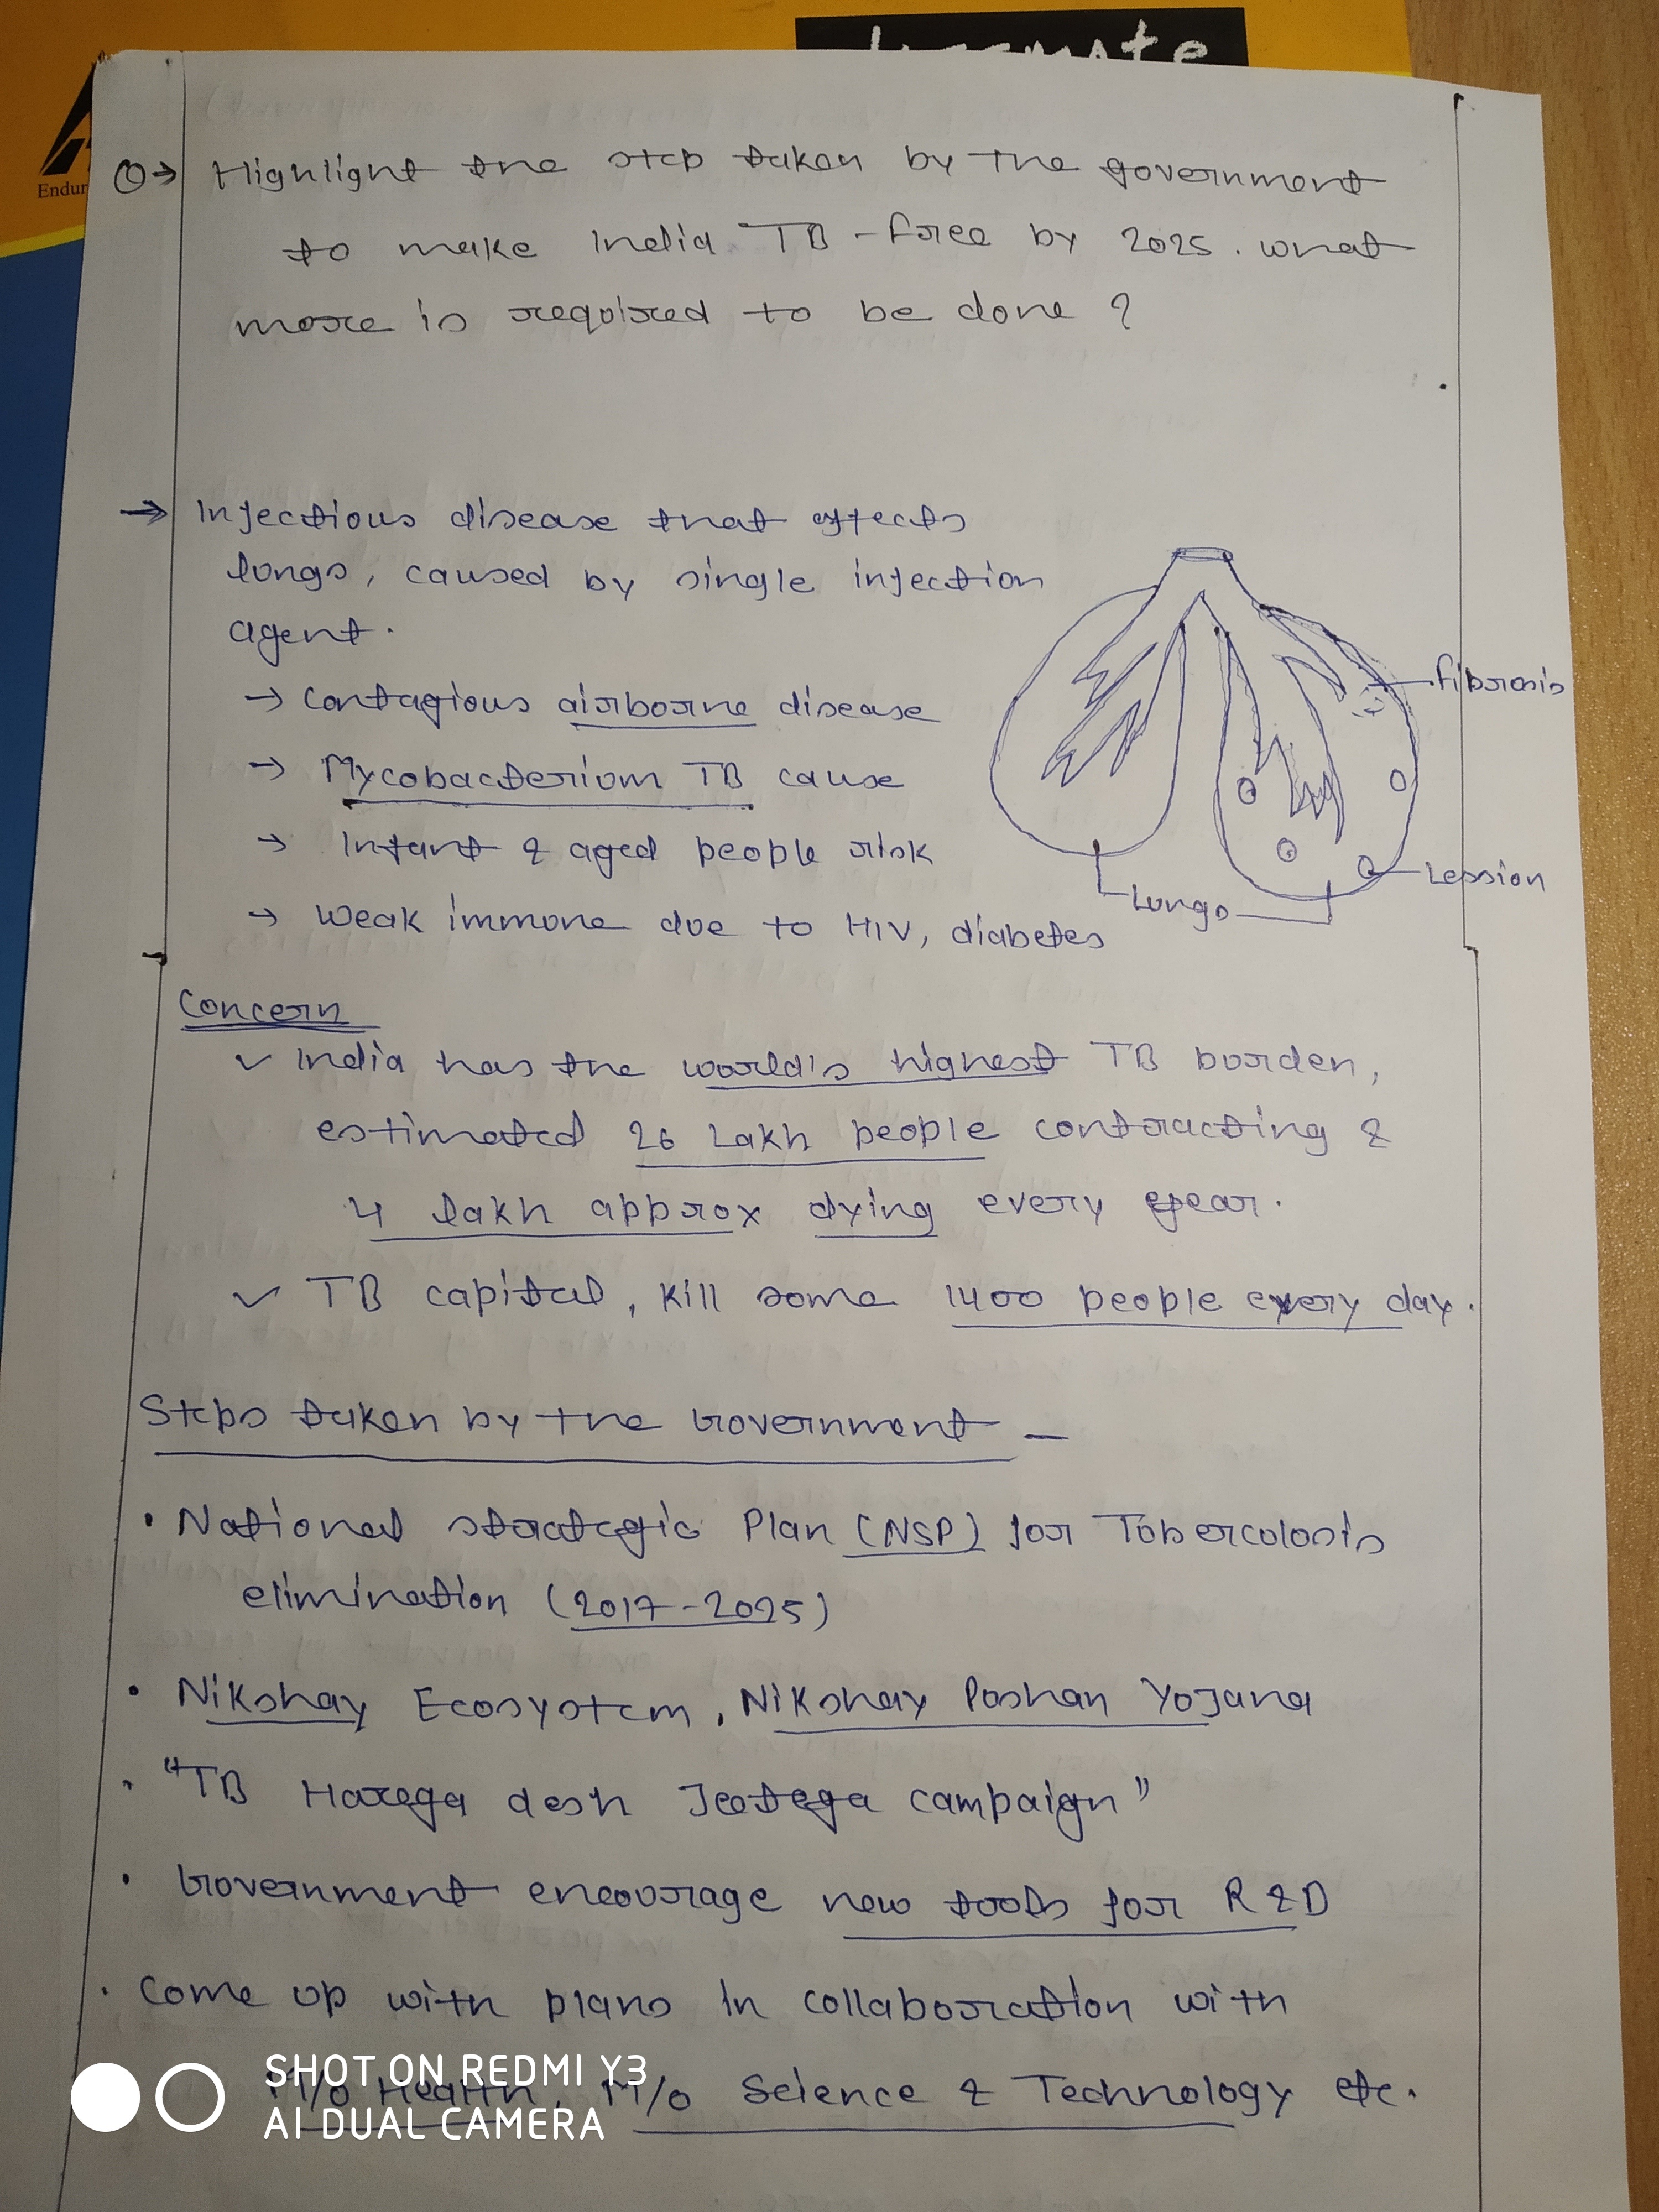 Endur
Q → Highlight the step taken by the government
to make India TB-free by 2025. what
more is required to be done ?
→ Infectious disease that effects
lungs, caused by single infection
agent.
→ contagious airborne disease
→ Mycobacterium TB cause
→ Infant & aged people risk
→ Weak immune due to HIV, diabetes
fibrosis
Lession
Lungs
Concern
✓ India has the world's highest TB burden,
estimated 26 Lakh people contracting &
4 lakh approx dying every year.
✓ TB capital, kill some 1400 people every day.
Steps taken by the Government –
• National strategic Plan (NSP) for Tuberculosis
elimination (2017-2025)
• Nikshay Ecosystem, Nikshay Poshan Yojana
• "TB Harega desh Jeetega campaign"
• Government encourage new tools for R&D
• Come up with plans in collaboration with
M/o Health, M/o Science & Technology etc.
SHOT ON REDMI Y3
AI DUAL CAMERA